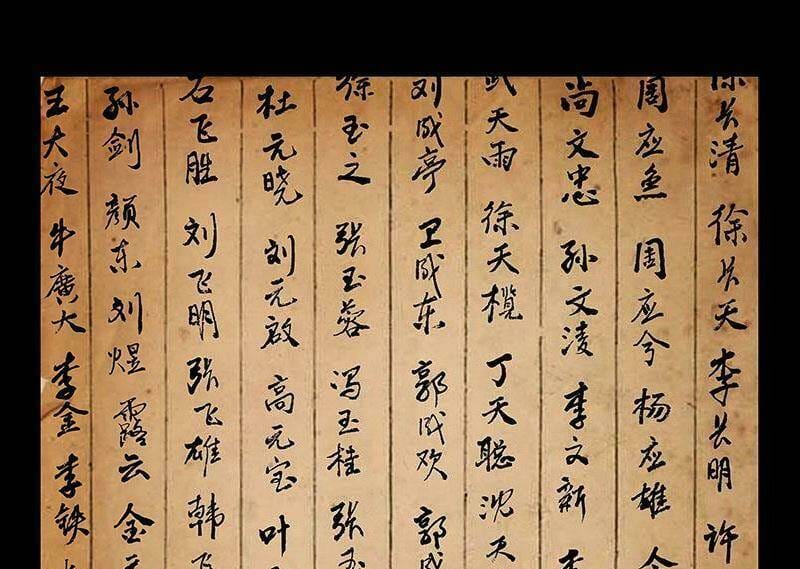 徐长清 徐长天 李长明 许
周应鱼 周应兮 杨应雄 令
尚文忠 孙文凌 李文新 李
武天雨 徐天榄 丁天聪 沈天
刘成亭 卫成东 郭成欢 郭成
徐玉之 张玉蓉 冯玉桂 张玉
杜元晓 刘元啟 高元宝 叶
石飞胜 刘飞明 张飞雄 韩飞
孙剑 颜东 刘煜 露云 金
王大夜 牛廣大 李金 李铁